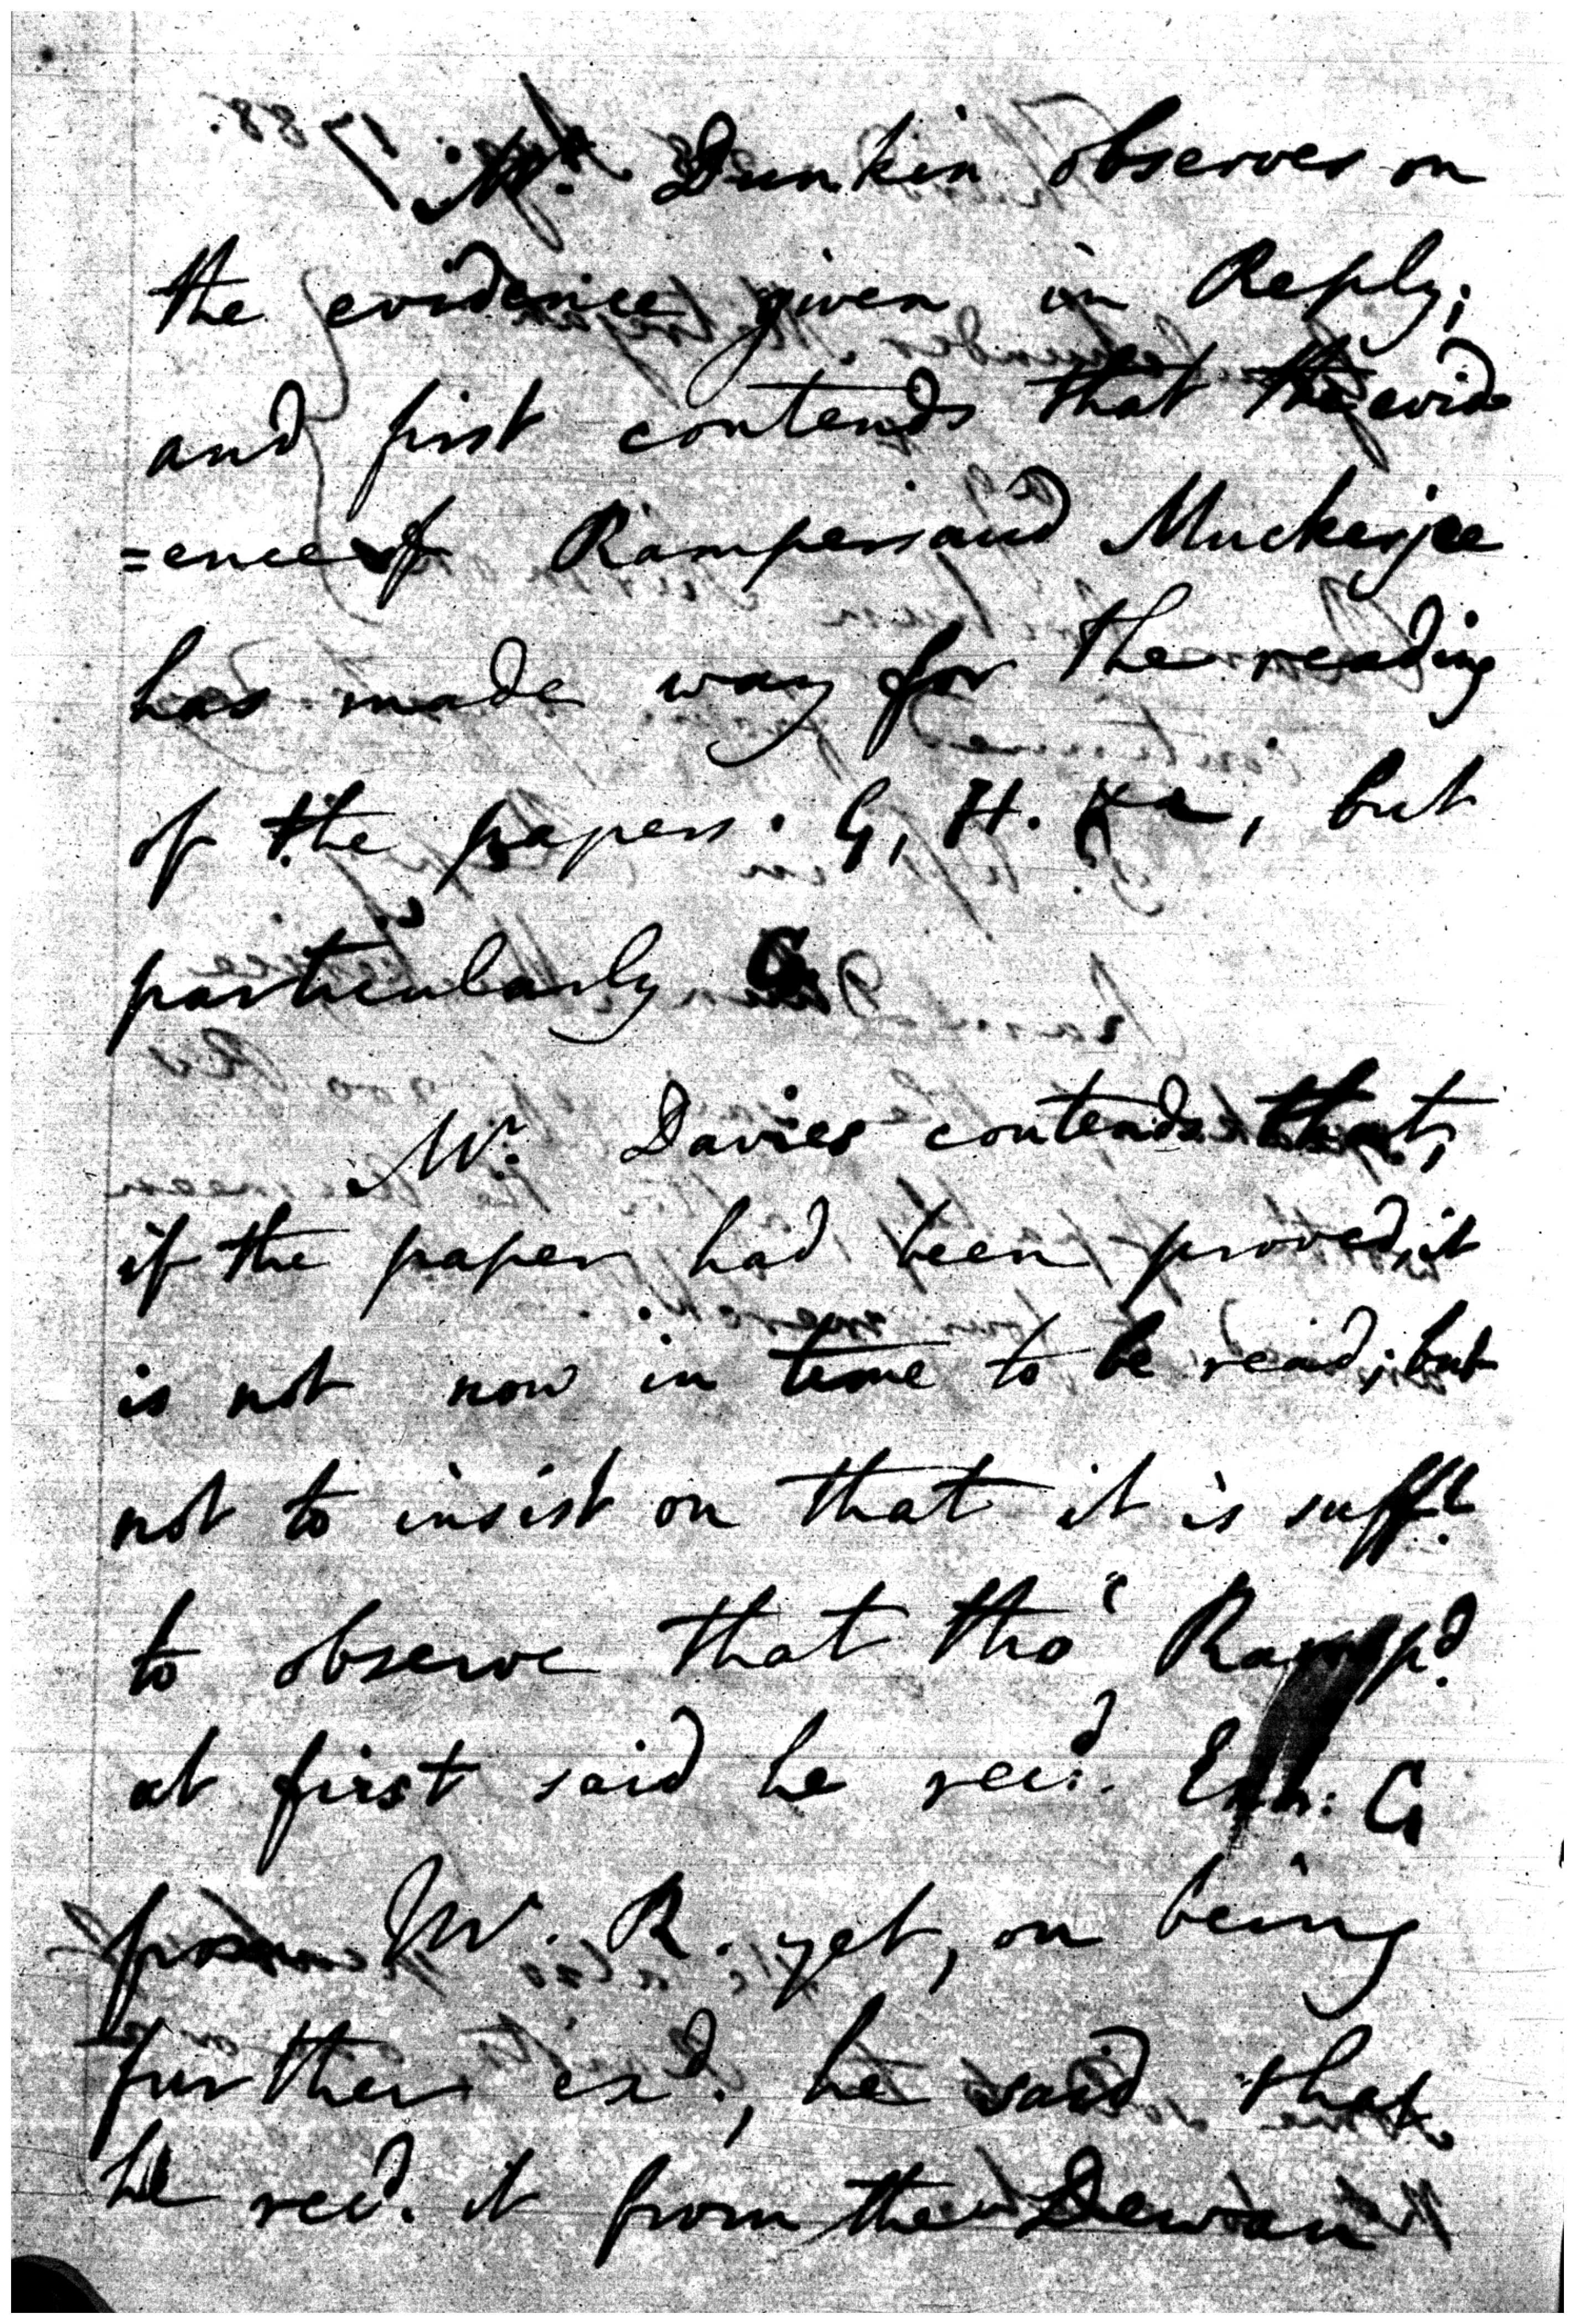 Mr. Dunkin observes on
the evidence given in Reply;
and first contends that the evid
=ence of Rampersaud Muckerjee
has made way for the reading
of the papers. G, H. &c, but
particularly G.
Mr. Davies contends that,
if the paper had been proved, it
is not now in time to be read; but
not to insist on that it is sufft.
to observe that tho' Rampd.
at first said he recd. Exh: G
from W. R. yet, on being
further exd., he said that
he recd. it from the Dewan